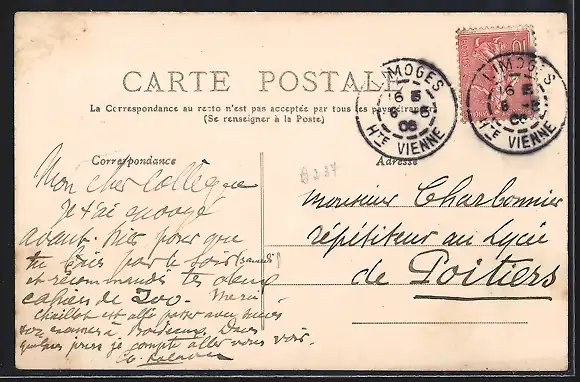 CARTE POSTALE
La Correspondance au recto n'est pas acceptée par tous les pays étrangers
(Se renseigner à la Poste)
LIMOGES
16
6 - 5
06
HTE VIENNE
10
LIMOGES
16
6 - 5
06
HTE VIENNE
Correspondance
Adresse
Mon cher Collègue
Je t'ai envoyé
avant-hier pour que
tu par le soir (samedi)
et recommandés tes deux
cahiers de 200. Merci
Chaillot est allé passer avec
son examen à Bordeaux. Dans
quelques jours je compte aller vous voir.
Monsieur Charbonnier
répétiteur au Lycée
de Poitiers